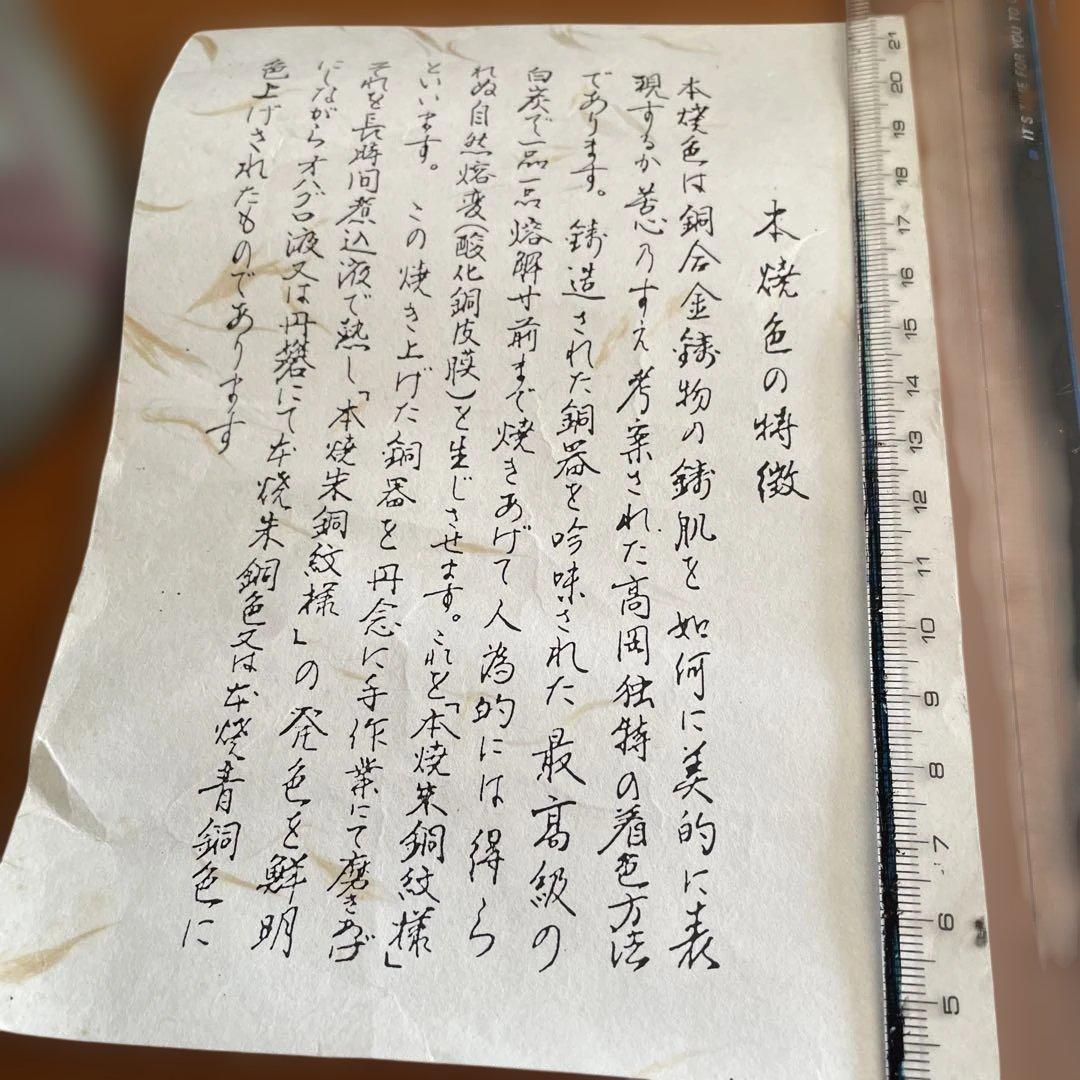 本焼色の特徴
本焼色は銅合金鋳物の鋳肌を如何に美的に表
現するか苦心乃すえ考案された高岡独特の着色方法
であります。鋳造された銅器を吟味された最高級の
白炭で一品一品熔解寸前まで焼きあげて人為的には得ら
れぬ自然熔変(酸化銅皮膜)を生じさせます。これを「本焼朱銅紋様」
といいます。この焼き上げた銅器を丹念に手作業にて磨きあげ
それを長時間煮込液で熱し「本焼朱銅紋様」の発色を鮮明
にしながらオハグロ液又は丹礬にて本焼朱銅色又は本焼青銅色に
色上げされたものであります
21
20
19
18
17
16
15
14
13
12
11
10
9
8
7
6
5
IT'S TIME FOR YOU TO